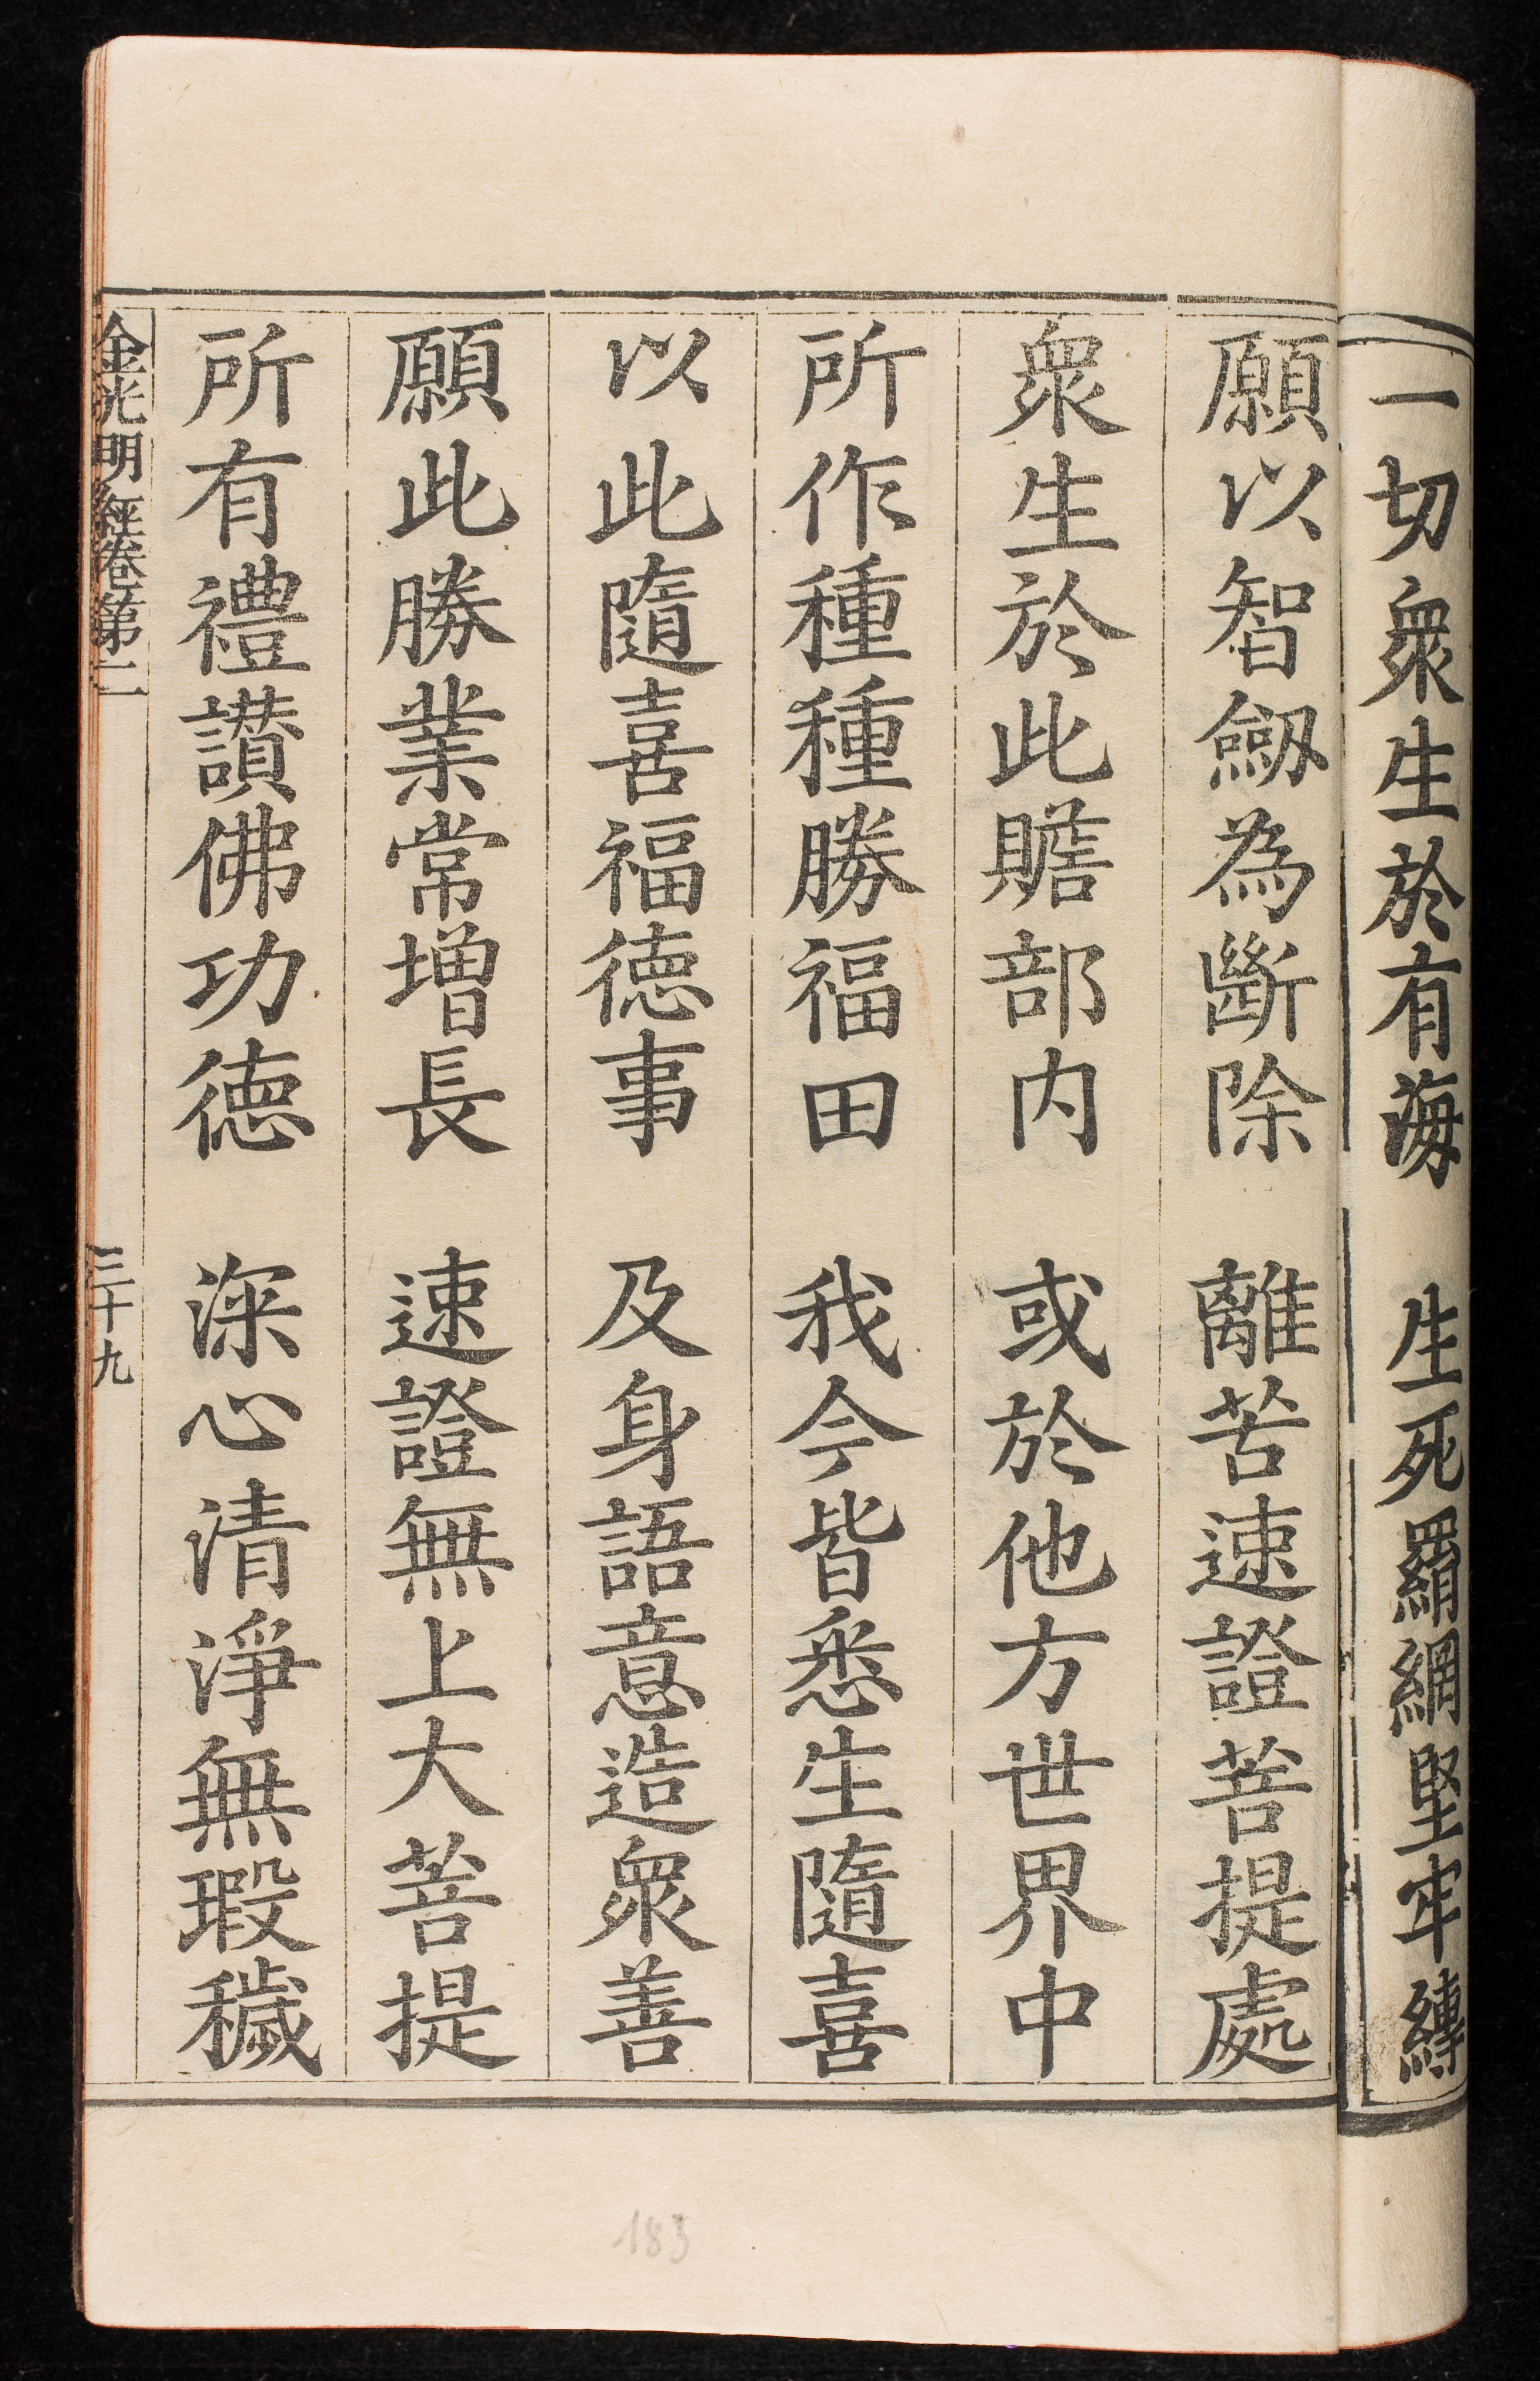 一切衆生於有海　生死羂網堅牢縛
願以智劒為斷除　離苦速證菩提處
衆生於此贍部內　或於他方世界中
所作種種勝福田　我今皆悉生隨喜
以此隨喜福德事　及身語意造衆善
願此勝業常增長　速證無上大菩提
所有禮讃佛功德　深心清淨無瑕穢
金光明經卷第二　三十九
183